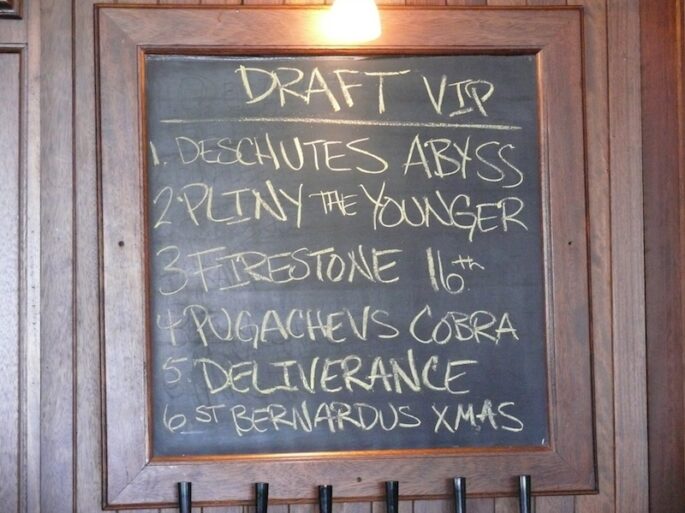 DRAFT VIP
1. DESCHUTES ABYSS
2. PLINY THE YOUNGER
3 FIRESTONE 16th
4 PUGACHEVS COBRA
5. DELIVERANCE
6 ST BERNARDUS XMAS